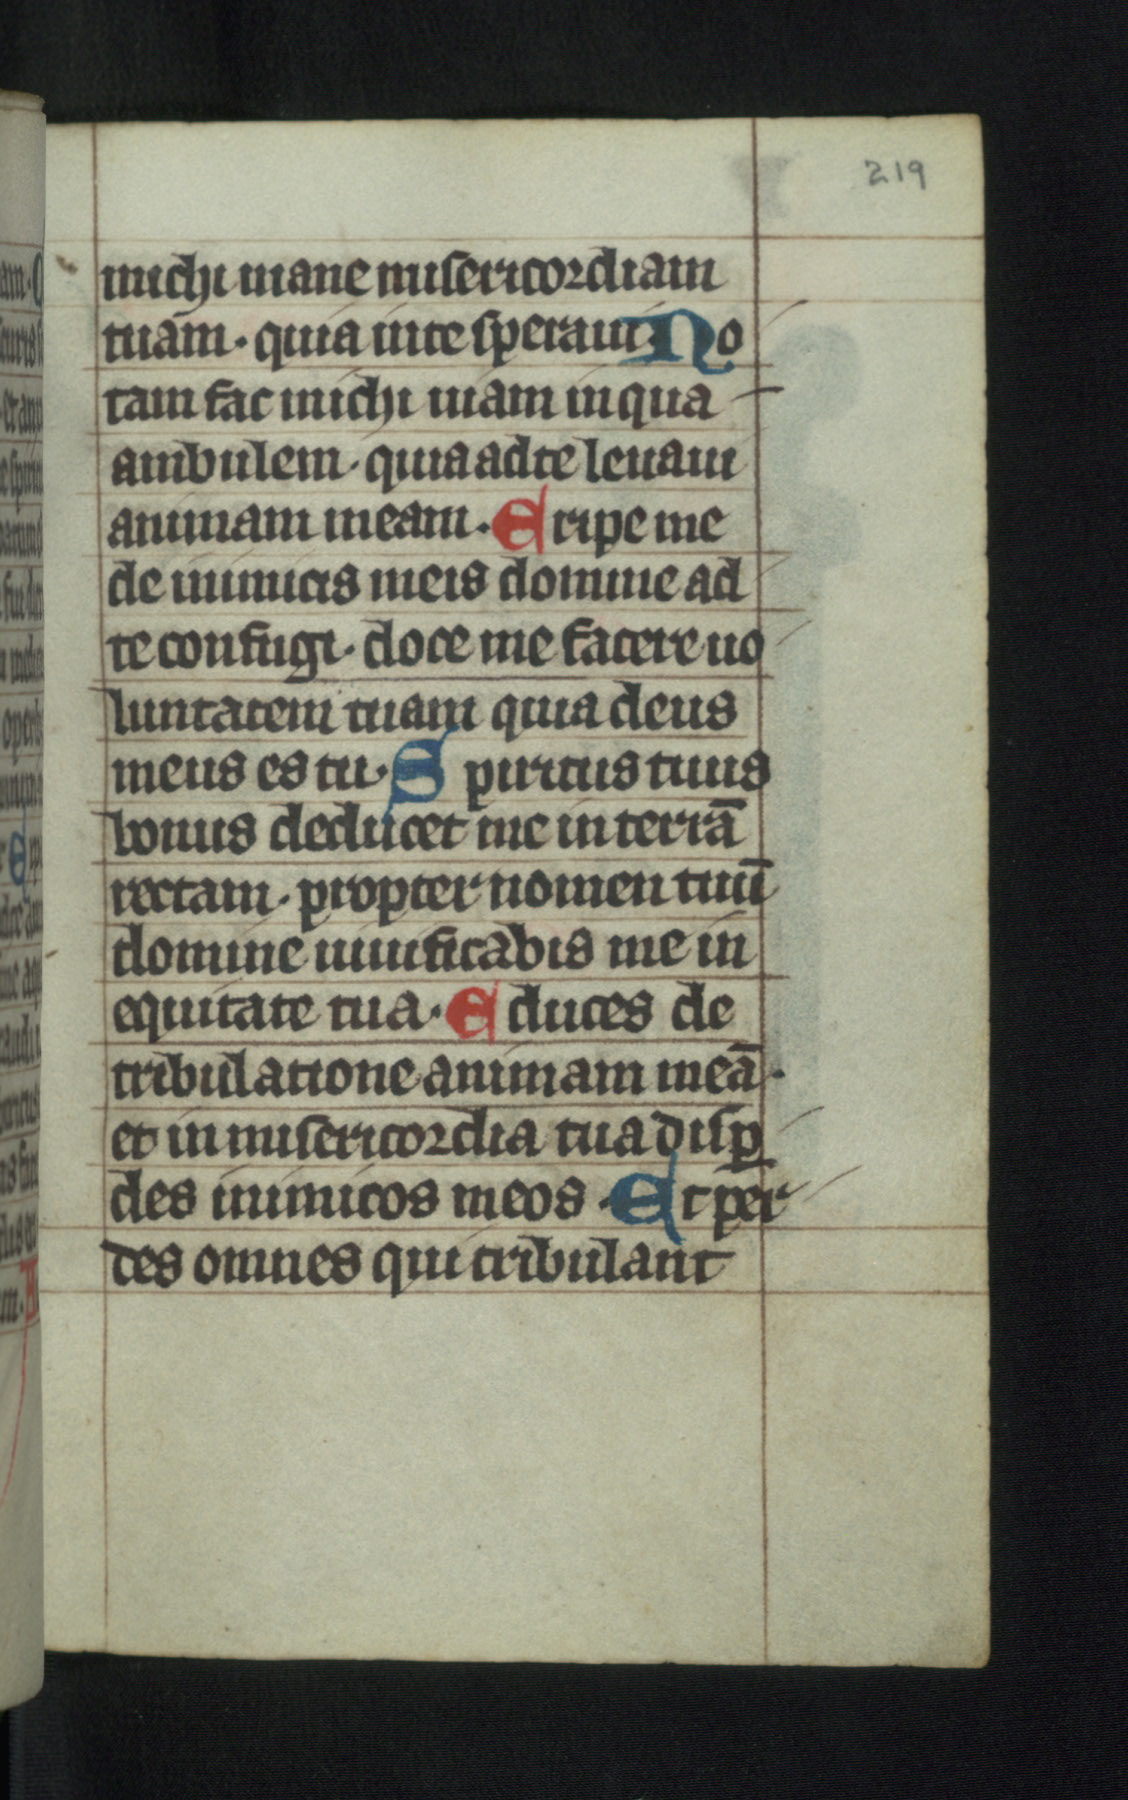 219
michi mane misericordiam
tuam · quia in te speraui · No
tam fac michi uiam in qua
ambulem · quia ad te leuaui
animam meam · Eripe me
de inimicis meis domine ad
te confugi · doce me facere uo
luntatem tuam quia deus
meus es tu · Spiritus tuus
bonus deducet me in terrā
rectam · propter nomen tuū
domine uiuificabis me in
equitate tua · Educes de
tribulatione animam meā ·
et in misericordia tua disꝑ
des inimicos meos · Et per
des omnes qui tribulant